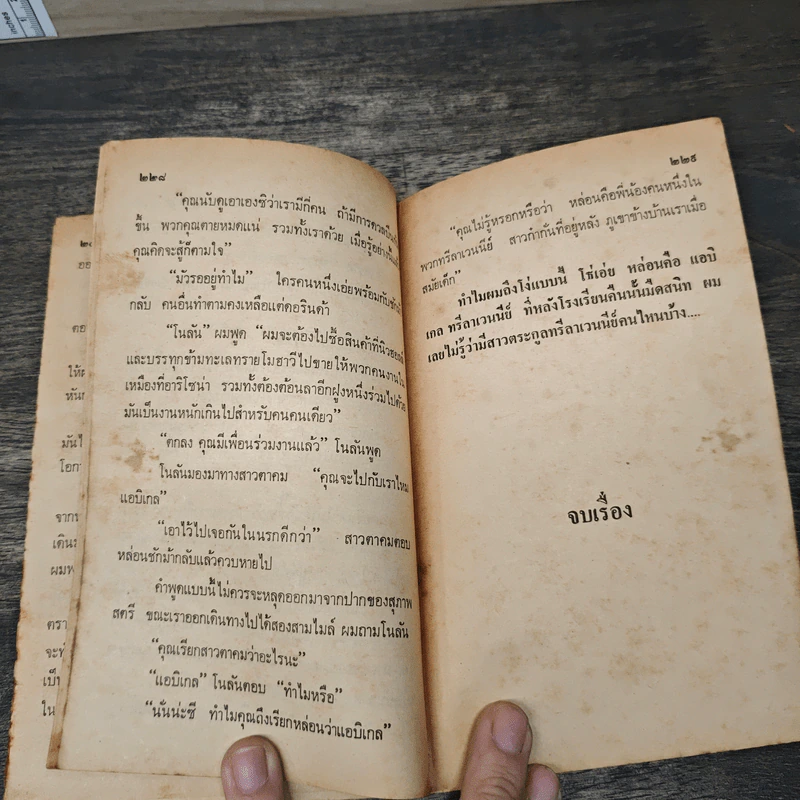 inches
๒๒๘
“คุณนับดูเอาเองซิว่าเรามีกี่คน ถ้ามีการดวลปืนกัน
ขึ้น พวกคุณตายหมดแน่ รวมทั้งเราด้วย เมื่อรู้อย่างนี้แล้ว
คุณคิดจะสู้ก็ตามใจ”
“มัวรออยู่ทำไม” ใครคนหนึ่งเอ่ยพร้อมกับชักม้า
กลับ คนอื่นทำตามคงเหลือแต่ดอรินด้า
“โนลัน” ผมพูด “ผมจะต้องไปซื้อสินค้าที่
และบรรทุกข้ามทะเลทรายโมฮาวีไปขายให้พวกคนงานใน
เหมืองที่อาริโซน่า รวมทั้งต้องต้อนลาอีกฝูงหนึ่งร่วมไปด้วย
มันเป็นงานหนักเกินไปสำหรับคนคนเดียว”
“ตกลง คุณมีเพื่อนร่วมงานแล้ว” โนลันพูด
โนลันมองมาทางสาวตาคม “คุณจะไปกับเราไหม
แอบิเกล”
“เอาไว้ไปเจอกันในนรกดีกว่า” สาวตาคมตอบ
หล่อนชักม้ากลับแล้วควบหายไป
คำพูดแบบนี้ไม่ควรจะหลุดออกมาจากปากของสุภาพ
สตรี ขณะเราออกเดินทางไปได้สองสามไมล์ ผมถามโนลัน
“คุณเรียกสาวตาคมว่าอะไรนะ”
“แอบิเกล” โนลันตอบ “ทำไมหรือ”
“นั่นน่ะซี ทำไมคุณถึงเรียกหล่อนว่าแอบิเกล”
๒๒๙
“คุณไม่รู้หรอกหรือว่า หล่อนคือพี่น้องคนหนึ่งใน
พวกทรีลาเวนนีย์ สาวกำกั่นที่อยู่หลัง ภูเขาข้างบ้านเราเมื่อ
สมัยเด็ก”
ทำไมผมถึงโง่แบบนี้ โธ่เอ๋ย หล่อนคือ แอบิ
เกล ทรีลาเวนนีย์ ที่หลังโรงเรียนคืนนั้นมืดสนิท ผม
เลยไม่รู้ว่ามีสาวตระกูลทรีลาเวนนีย์คนไหนบ้าง....
จบเรื่อง